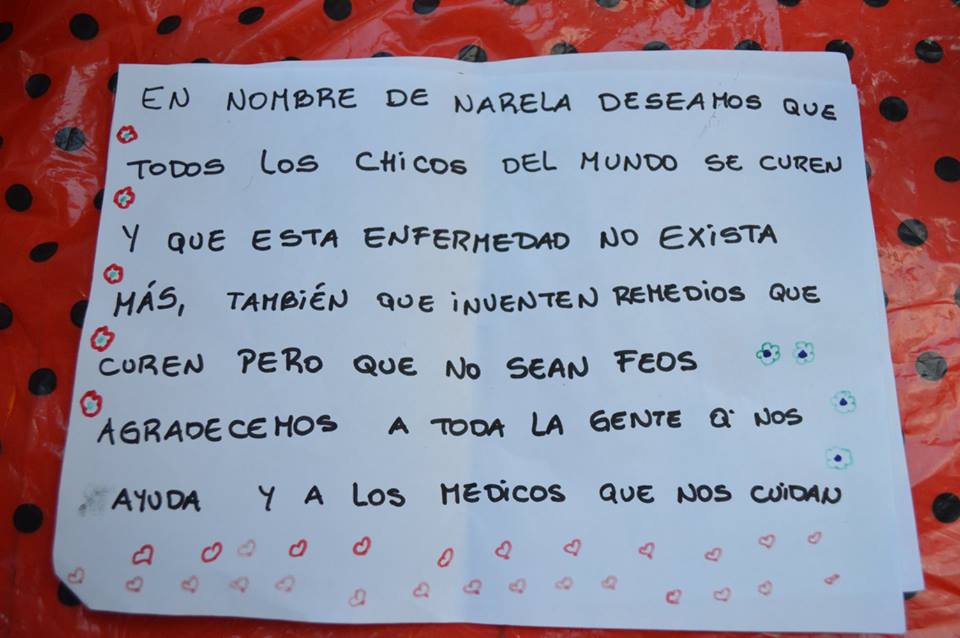 EN NOMBRE DE NARELA DESEAMOS QUE
TODOS LOS CHICOS DEL MUNDO SE CUREN
Y QUE ESTA ENFERMEDAD NO EXISTA
MÁS, TAMBIÉN QUE INVENTEN REMEDIOS QUE
CUREN PERO QUE NO SEAN FEOS
AGRADECEMOS A TODA LA GENTE Q' NOS
AYUDA Y A LOS MEDICOS QUE NOS CUIDAN